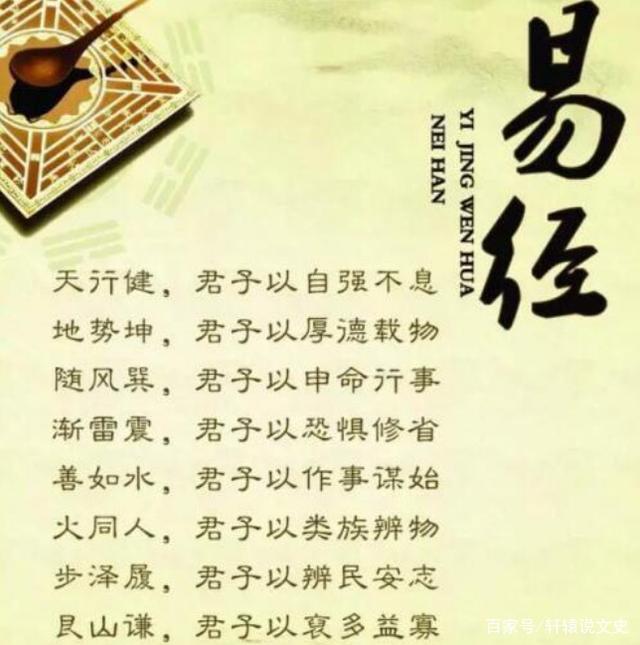 易经
YI JING WEN HUA
NEI HAN
天行健，君子以自强不息
地势坤，君子以厚德载物
随风巽，君子以申命行事
渐雷震，君子以恐惧修省
善如水，君子以作事谋始
火同人，君子以类族辨物
步泽履，君子以辨民安志
艮山谦，君子以裒多益寡
百家号/轩辕说文史